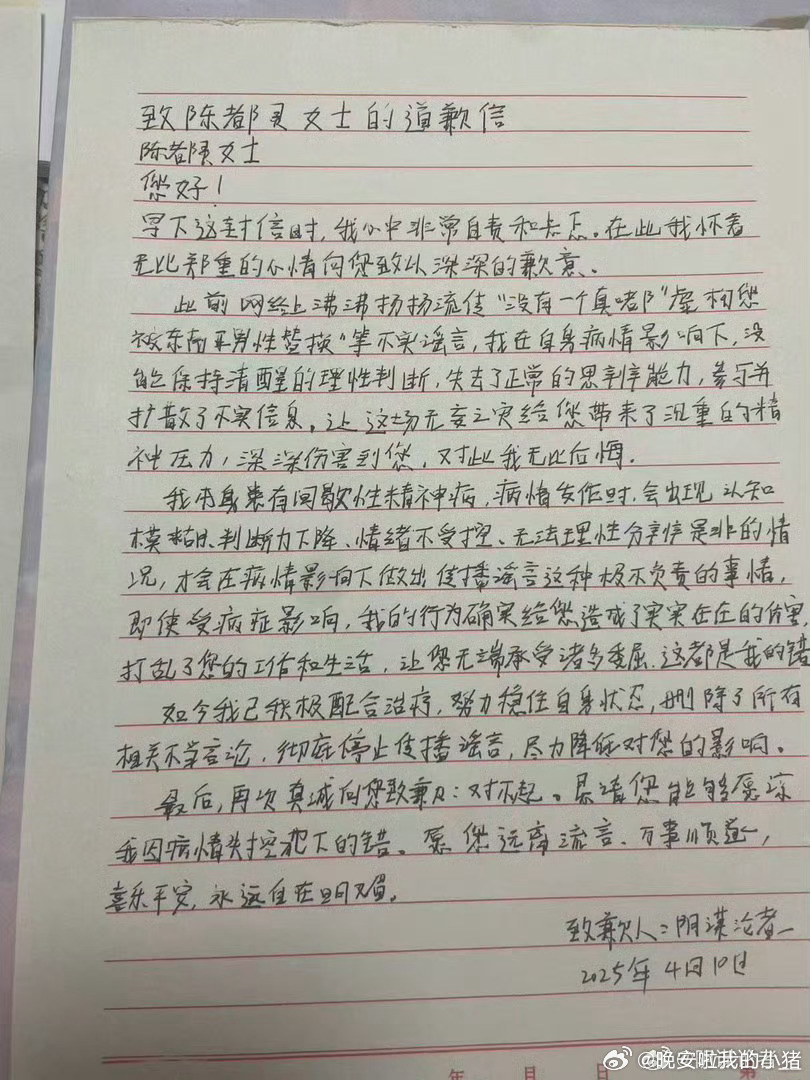 致陈都灵女士的道歉信
陈都灵女士
您好！
写下这封信时，我心中非常自责和忐忑。在此我怀着
无比郑重的心情向您致以深深的歉意。
此前网络上沸沸扬扬流传“没有一个真嘟”虚构您
被东南亚男性替换“等不实谣言，我在自身病情影响下，没
能保持清醒的理性判断，失去了正常的思辨能力，参与并
扩散了不实信息。让这场无妄之灾给您带来了沉重的精
神压力，深深伤害到您，对此我无比后悔。
我本身患有间歇性精神病，病情发作时，会出现认知
模糊、判断力下降、情绪不受控、无法理性分辨是非的情
况，才会在病情影响下做出传播谣言这种极不负责的事情，
即使受病症影响，我的行为确实给您造成了实实在在的伤害，
打乱了您的工作和生活，让您无端承受诸多委屈，这都是我的错
如今我已积极配合治疗，努力稳住自身状态，删除了所有
相关不当言论，彻底停止传播谣言，尽力降低对您的影响。
最后，再次真诚向您致歉：对不起。恳请您能够原谅
我因病情失控犯下的错。愿您远离流言、万事顺遂，
喜乐平安，永远自在明媚。
致歉人：阴谋论者
2025年4月10日
年 月 日 第
@晚安啦我的小猪